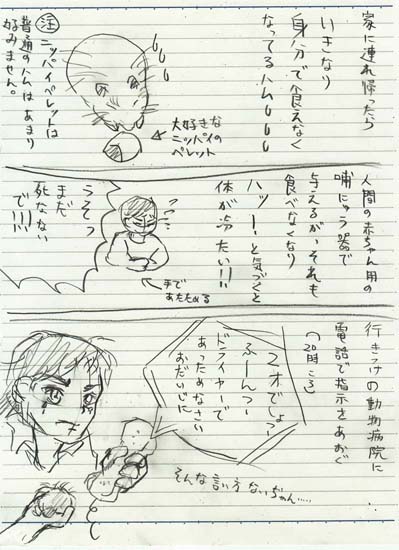 家に連れ帰ったら
いきなり
自分で食えなく
なってるハムししし
ししし
大好きな
ニッパイの
ペレット
注 ニッパイペレットは
普通のハムはあまり
好みません。
人間の赤ちゃん用の
哺にゅう器で
与えるが、それも
食べなくなり
ハッ!と気づくと
体が冷たい!!!
手で
あたためる
うそっ
まだ
死なない
で!!!
行きつけの動物病院に
電話で指示をあおぐ
(20時ころ)
2才でしょっー
ふーんっー
あっためなさい
ドライヤーで
おだいじに
そんな言い方ないぢゃん……